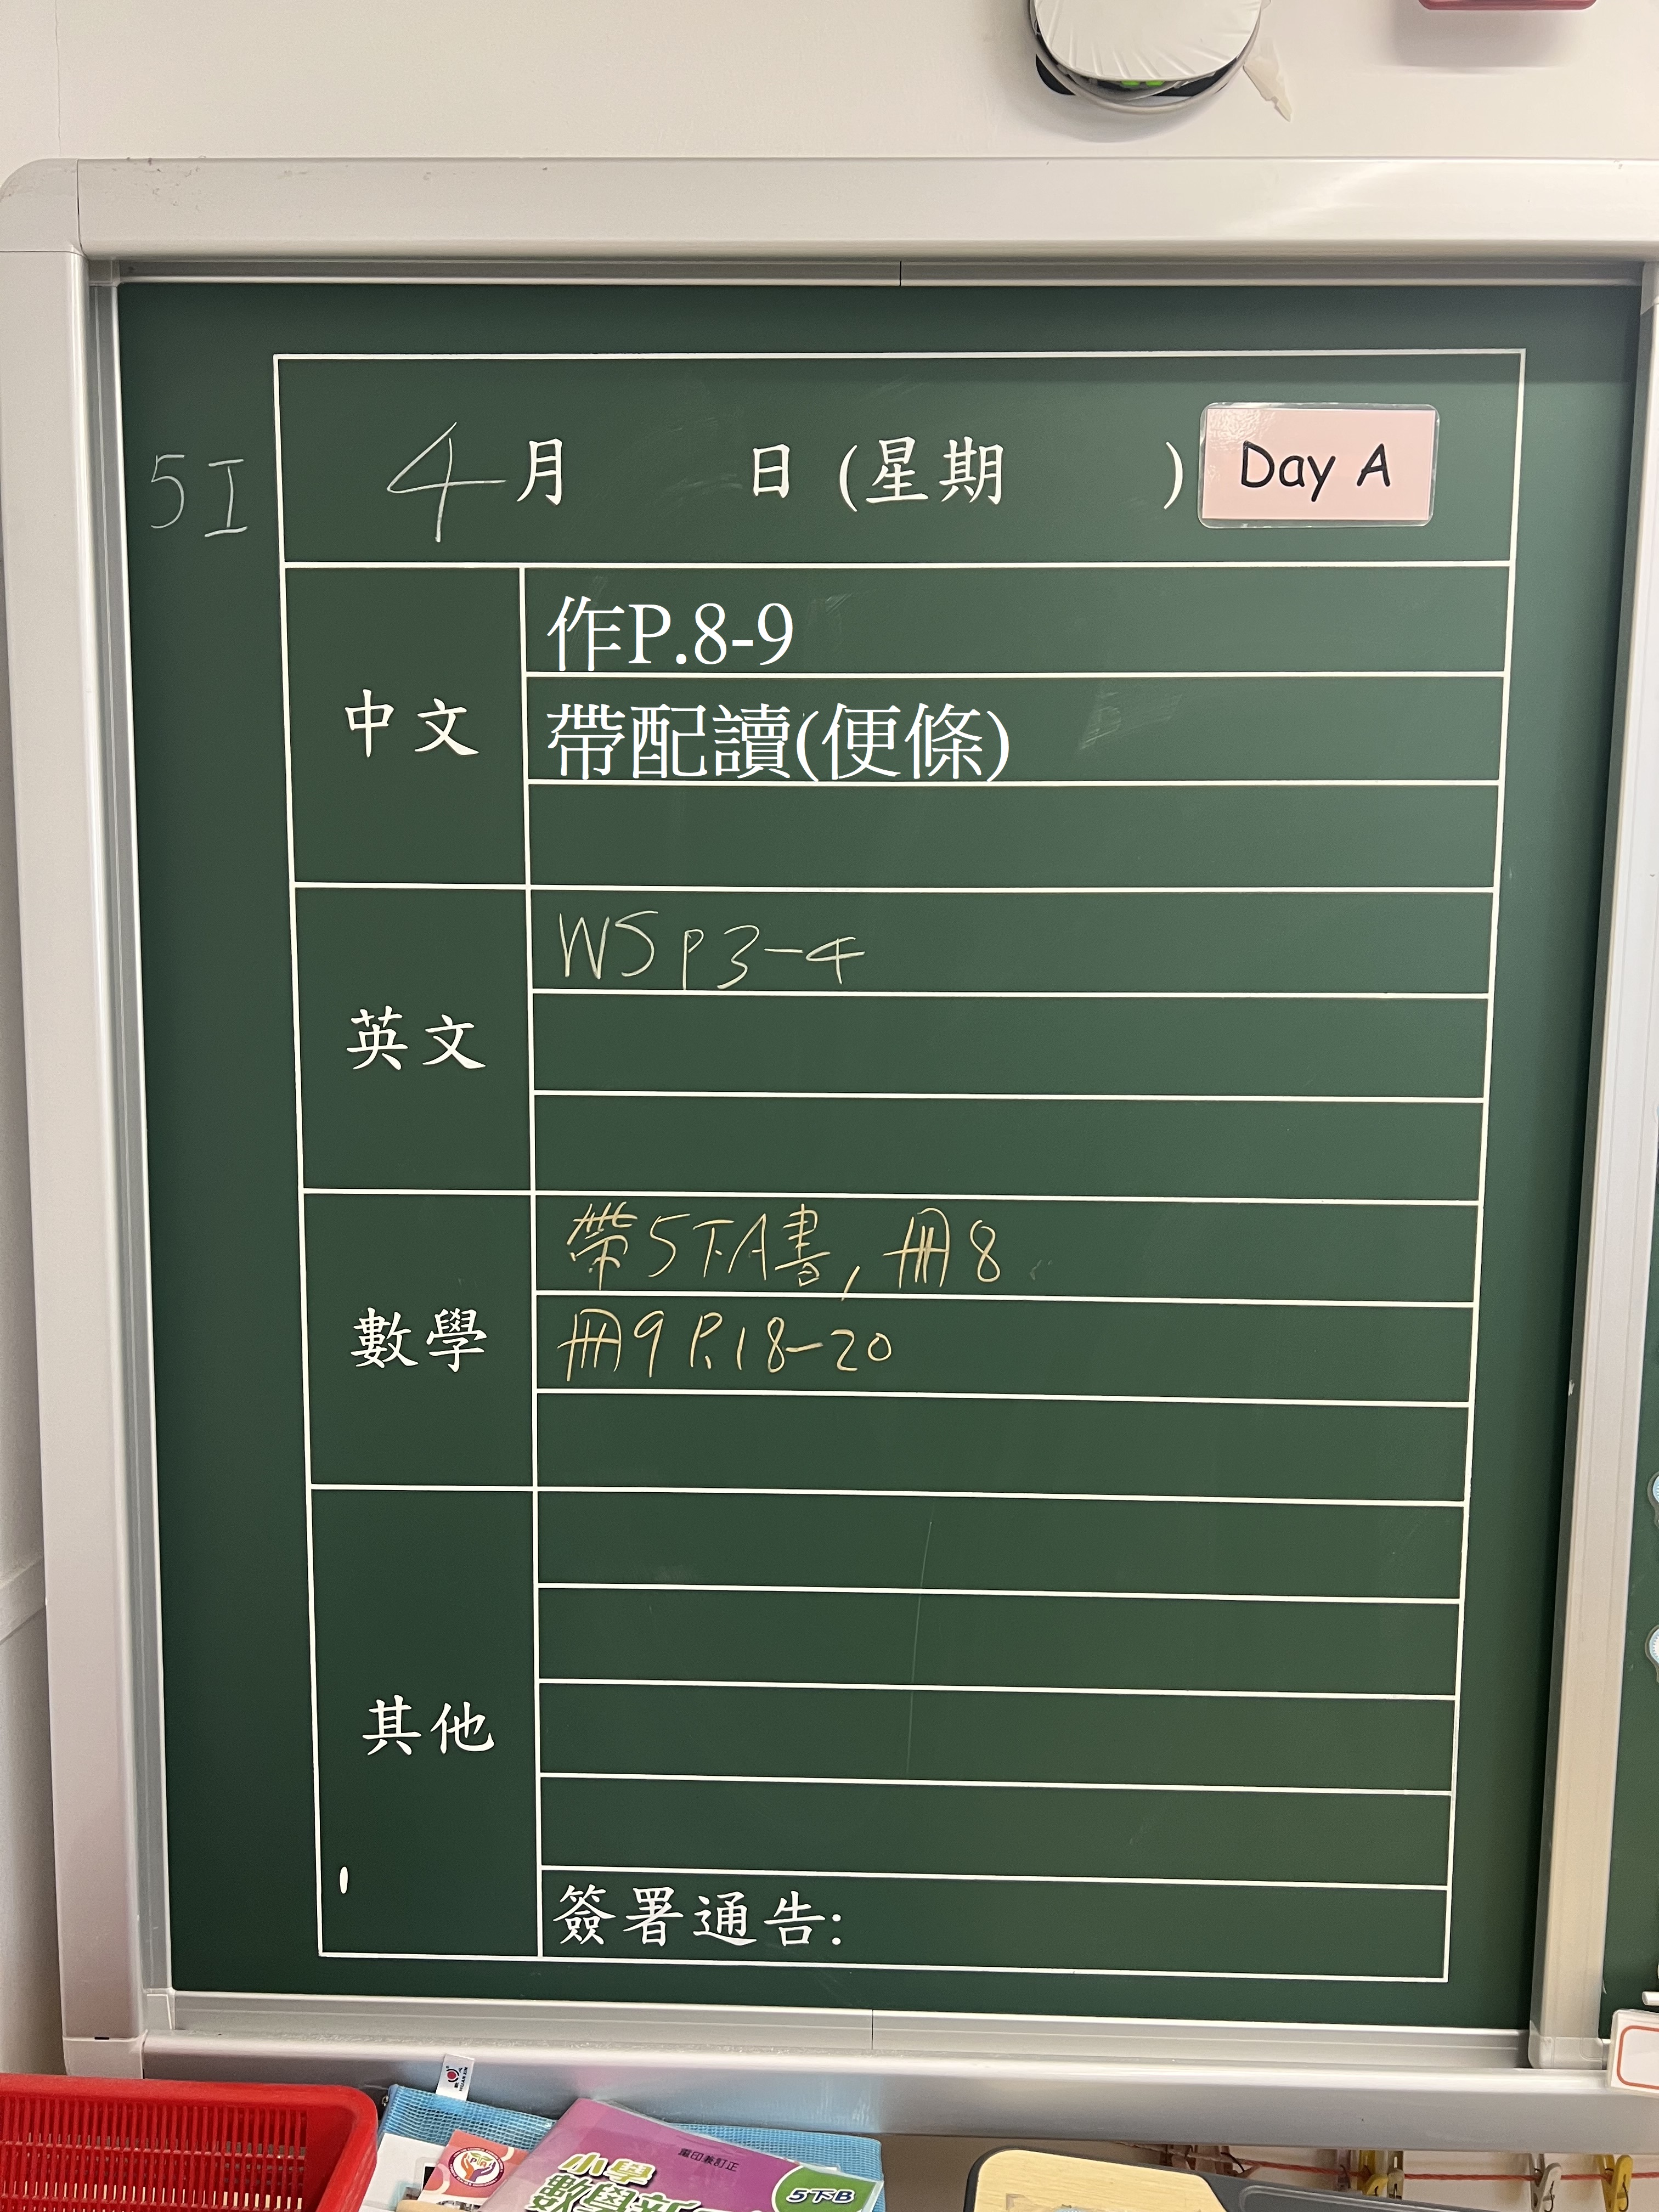 5I
4月 日(星期 ) Day A
中文
作P.8-9
帶配讀(便條)
英文
WS p3-4
數學
帶5下A書, 冊8
冊9 P.18-20
其他
簽署通告:
重印兼訂正
小學
數學新
5下B